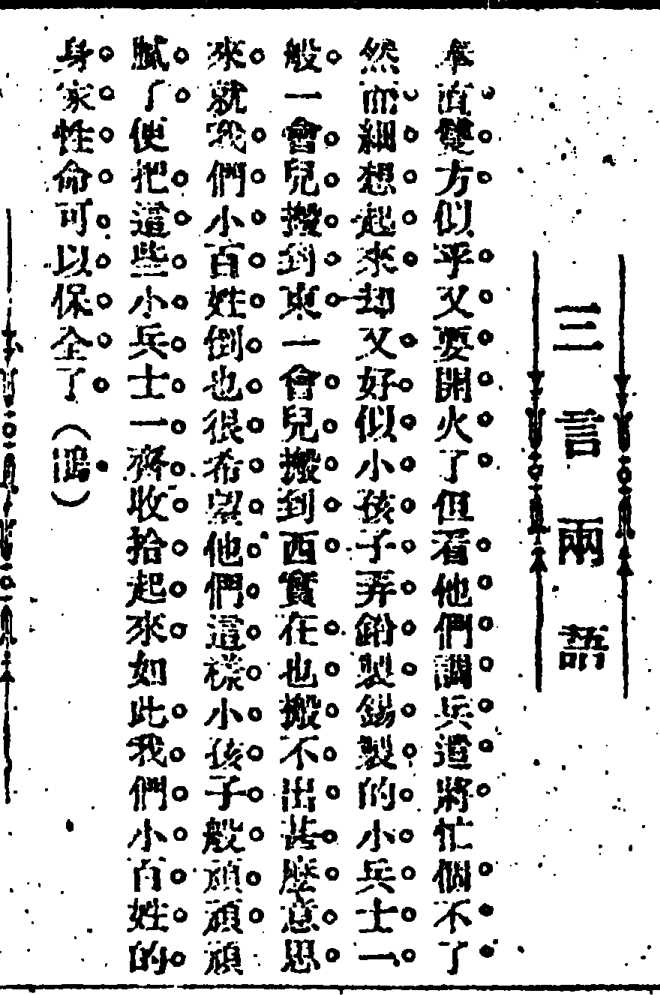 三言兩語
奉直雙方似乎又要開火了但看他們調兵遣將忙個不了
然而細想起來却又好似小孩子弄鉛製錫製的小兵士一
般一會兒搬到東一會兒搬到西實在也搬不出甚麼意思
來就我們小百姓倒也很希望他們這樣小孩子般頑頑頑
膩了便把這些小兵士一齊收拾起來如此我們小百姓的
身家性命可以保全了（鴻）